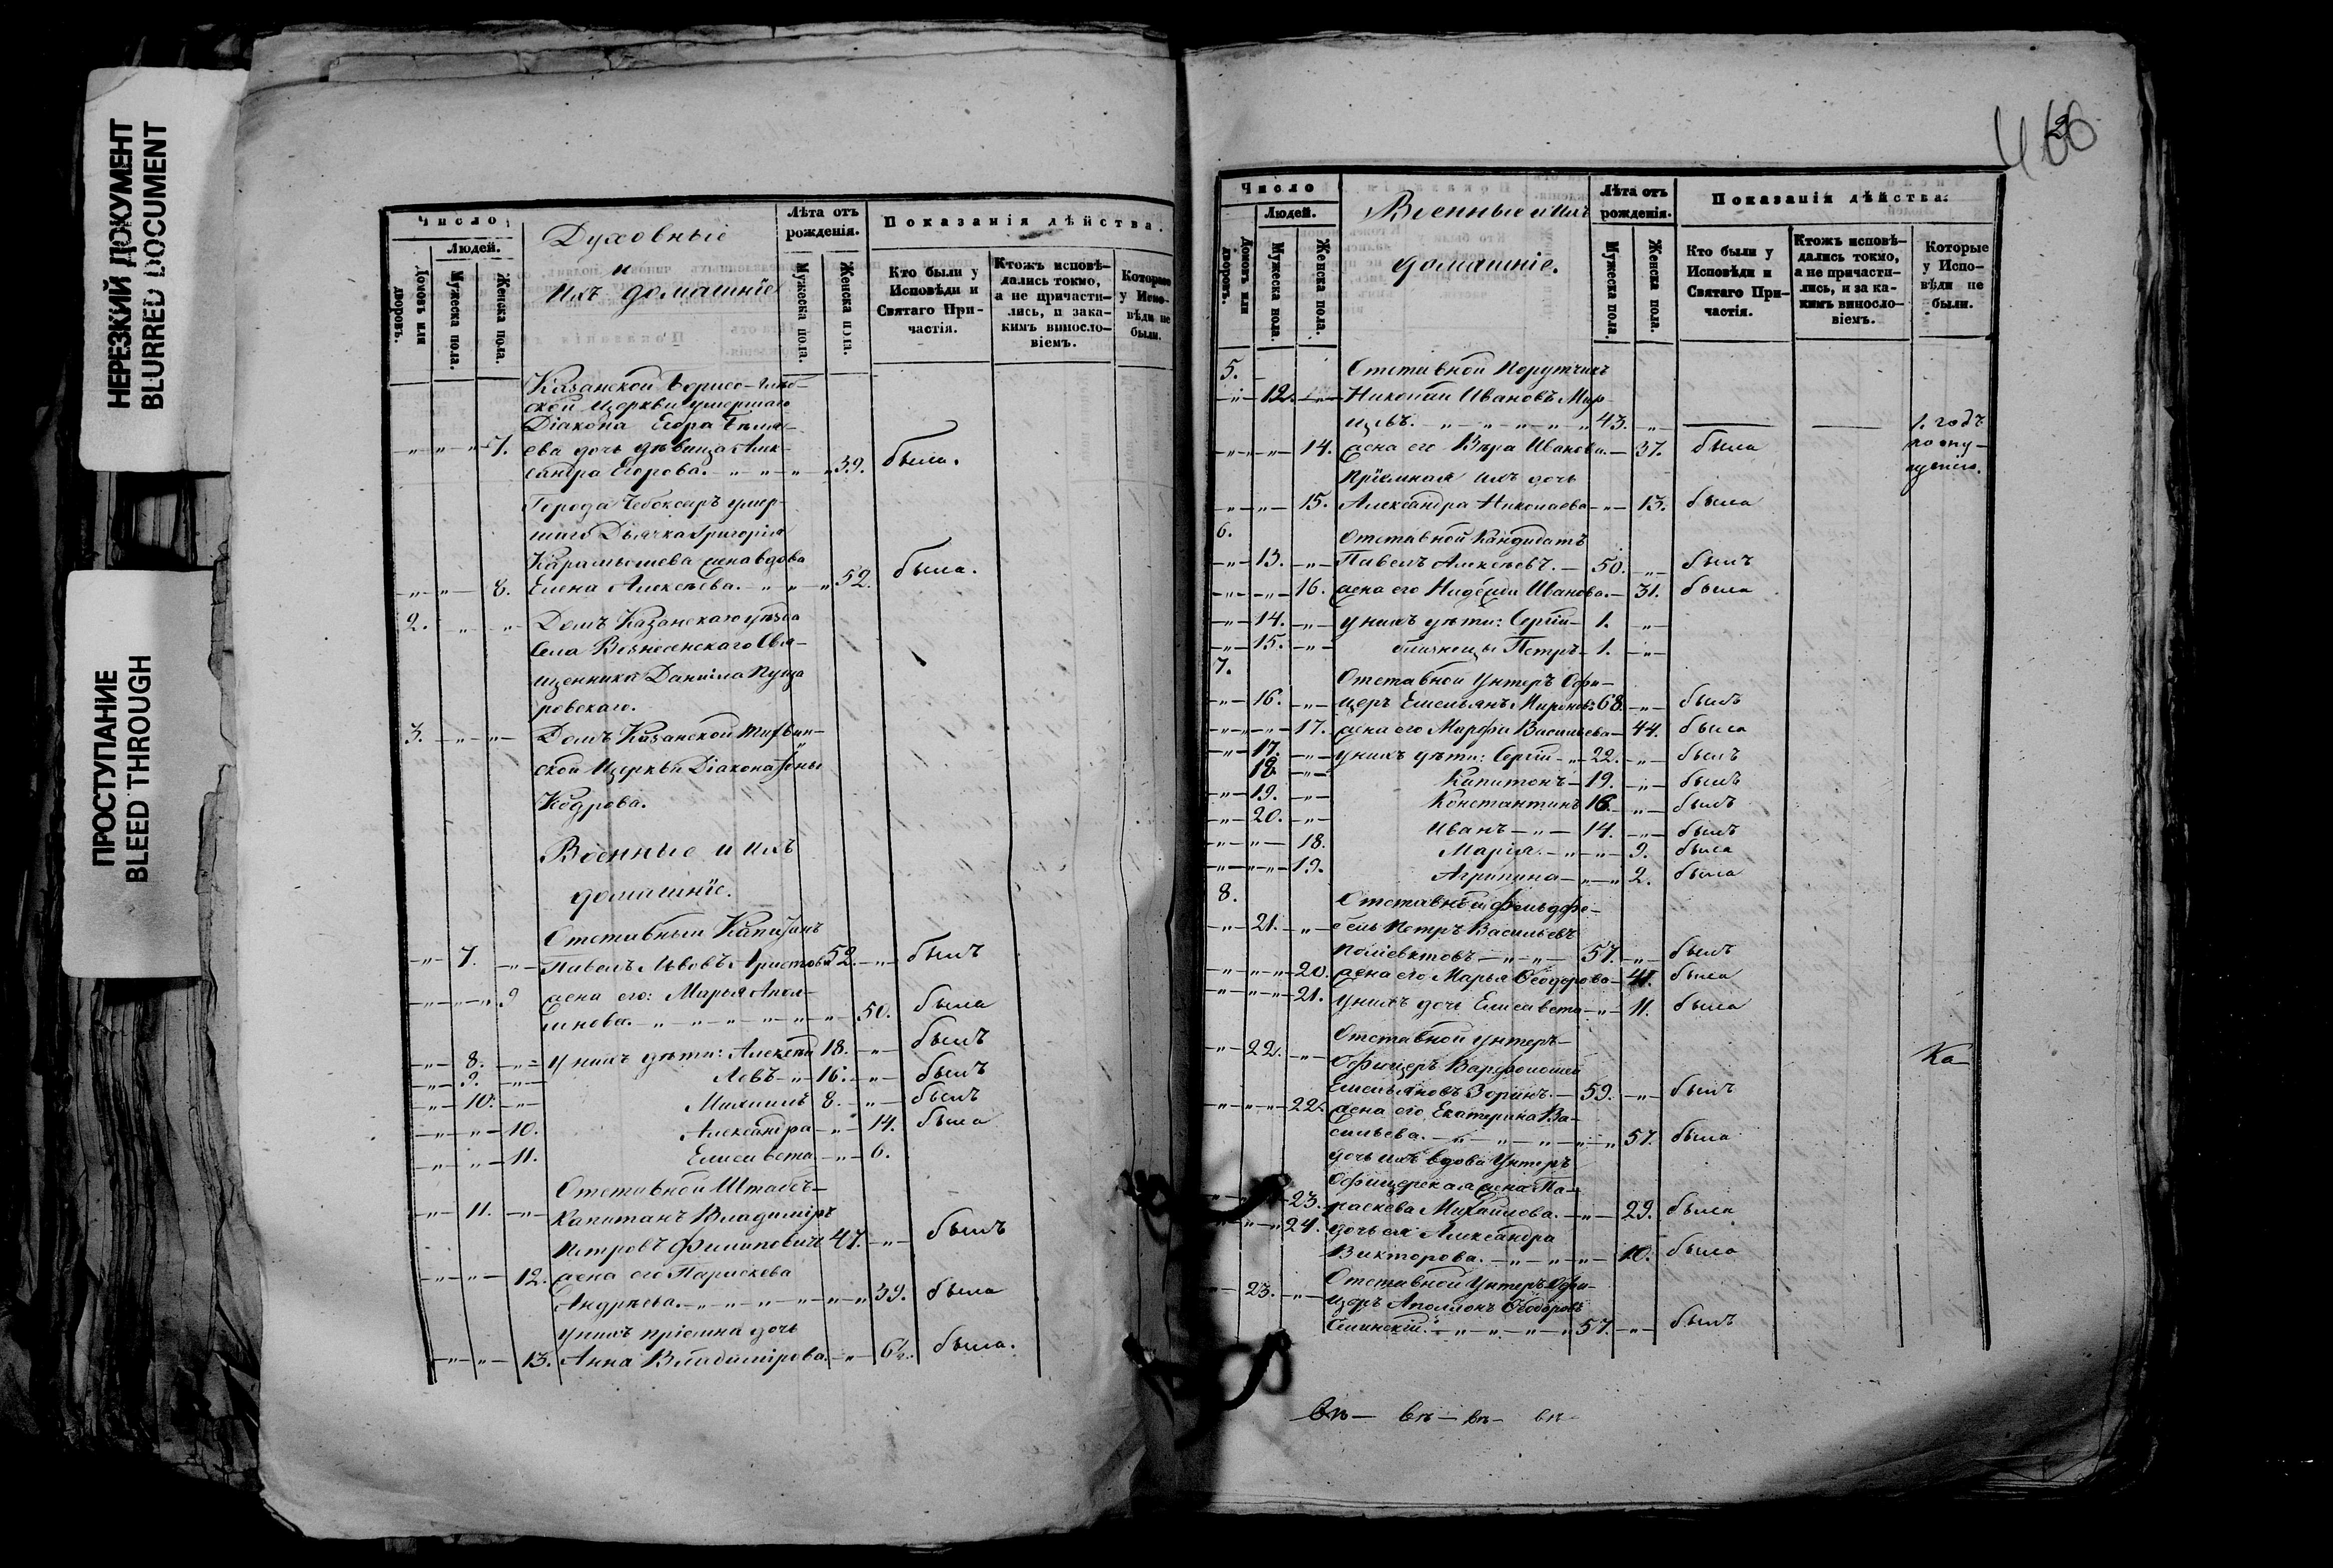 НЕРЕЗКИЙ ДОКУМЕНТ
BLURRED DOCUMENT
ПРОСТУПАНИЕ
BLEED THROUGH
Число
Людей.
Домовъ или дворовъ.
Мужеска пола.
Женска пола.
Духовныіе
и
ихъ домашніе
Лѣта отъ рожденія.
Мужеска пола.
Женска пола.
Показанія дѣйства.
Кто были у Исповѣди и Святаго Причастія.
Ктожъ исповѣдались токмо, а не причастились, и за какимъ винословіемъ.
Которые у Исповѣди не были.
Казанской
ской Церкви умершаго
Діакона Егора
7. ева дочь дѣвица Алек-
сандра Егорова. 39. была.
Города Чебоксаръ умер-
шаго Дьячка Григорія
Карамышева жена вдова
8. Елена Алексѣева. 52. была.
2. Домъ Казанскаго уѣзда
Села Вознесенскаго Свя-
щенника Даніила Пуца
ровскаго.
3. Домъ Казанской Тихвин-
ской Церкви Діакона Іоны
Кедрова.
Военные и ихъ
домашніе.
Отставный Капитанъ
7. Павелъ Львовъ Аристовъ 52. былъ
9 жена его: Марья Апол-
инова. 50. была
8. у нихъ дѣти: Алексѣй 18. былъ
9. Левъ 16. былъ
10. Михаилъ 8. былъ
10. Александра 14. была
11. Елисавета 6.
Отставной Штабсъ-
11. Капитанъ Владиміръ
Петровъ Филиповичъ 47. былъ
12. жена его Параскева
Андрѣева. 39. была
у нихъ пріемна дочь
13. Анна Владимірова. была.
Число
Людей.
Домовъ или дворовъ.
Мужеска пола.
Женска пола.
Военные и ихъ
домашніе.
Лѣта отъ рожденія.
Мужеска пола.
Женска пола.
Показанія дѣйства.
Кто были у Исповѣди и Святаго Причастія.
Ктожъ исповѣдались токмо, а не причастились, и за какимъ винословіемъ.
Которые у Исповѣди не были.
5. Отставной Порутчикъ
12. Николай Ивановъ Мур-
цовъ. 43. 1. годъ
14. жена его Вѣра Иванова. 37. была по опу-
щенію.
Пріемная ихъ дочь
15. Александра Николаева 13. была
6. Отставной Кандидатъ
13. Павелъ Алексѣевъ. 50. былъ
16. жена его Надежда Иванова. 31. была
14. у нихъ дѣти: Сергій 1.
15. близнецы Петръ 1.
7. Отставной Унтеръ Офи-
16. церъ Емельянъ Мироновъ 68. былъ
17. жена его Марфа Васильева 44. была
17. у нихъ дѣти: Сергій 22. былъ
18. Капитонъ 19. былъ
19. Константинъ 16. былъ
20. Иванъ 14. былъ
18. Марія 9. была
19. Агрипина 2. была
8. Отставный Фельдфе-
21. бель Петръ Васильевъ
Поліевктовъ 57. былъ
20. жена его Марья Ѳеодорова 41. была
21. у нихъ дочь Елисавета 11. была
Отставной Унтеръ-
22. Офицеръ Варфоломей
Ка-
Емельяновъ Зоринъ. 59. былъ
22. жена его Екатерина Ва-
сильева. 57. была
дочь ихъ вдова Унтеръ
Офицерская жена Па-
23. раскева Михайлова. 29. была
24. дочь ея Александра
Викторова. 10. была
Отставной Унтеръ Офи-
23. церъ Аполлонъ Ѳеодоровъ
57. былъ